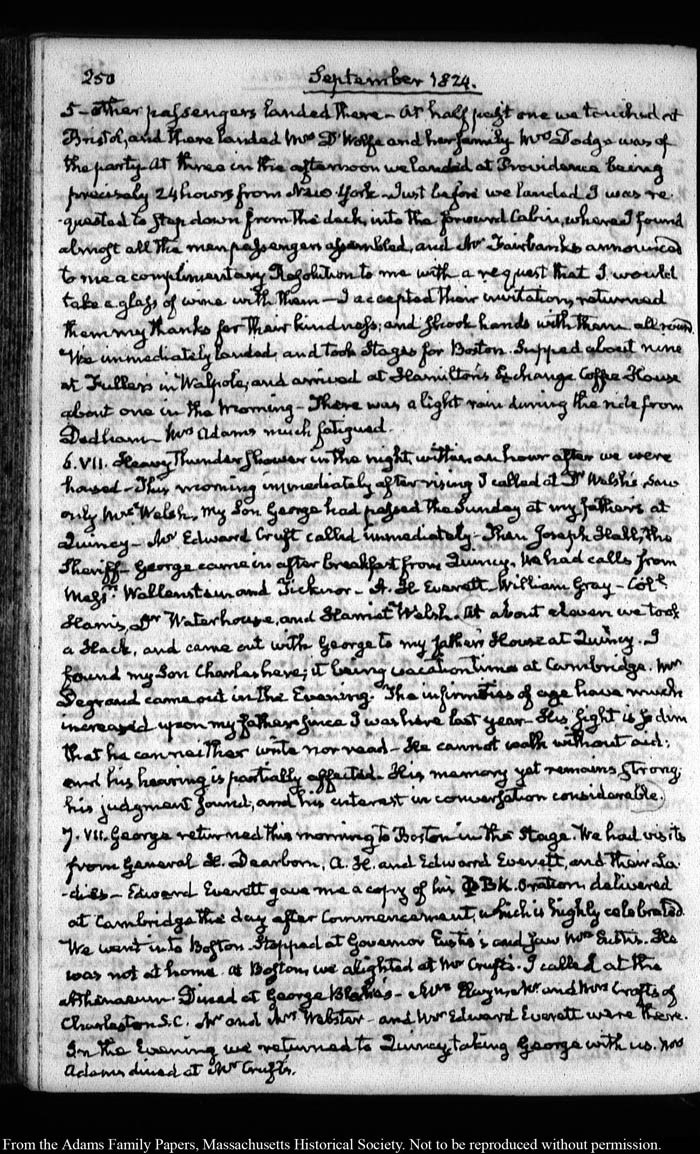 250 September 1824.
5 - other passengers landed there - At half past one we touched at
Bristol, and there landed Mrs D'Wolfe and her family Mrs Dodge was of
the party. At three in the afternoon we landed at Providence being
precisely 24 hours from New York - Just before we landed I was re-
-quested to step down from the deck, into the forward Cabin, where I found
almost all the men passengers assembled, and Mr Fairbanks announced
to me a complimentary Resolution to me with a request that I would
take a glass of wine with them - I accepted their invitation, returned
them my thanks for their kindness, and shook hands with them all round.
We immediately landed, and took Stages for Boston. Supped about nine
at Fuller's in Walpole, and arrived at Hamilton's Exchange Coffee House
about one in the morning - There was a light rain during the ride from
Dedham - Mrs Adams much fatigued.
6. VII. Heavy Thunder Shower in the night, within an hour after we were
housed - This morning immediately after rising I called at Dr Welsh's, saw
only Mrs Welsh. My Son George had passed the Sunday at my father's at
Quincy - Mr Edward Cruft called immediately - Then Joseph Hall, the
Sheriff - George came in after breakfast from Quincy. We had calls from
Messrs Wallenstein and Ticknor - A. H. Everett - William Gray - Coll
Harris, Dr Waterhouse, and Harriet Welsh. At about eleven we took
a Hack, and came out with George to my father's House at Quincy. I
found my Son Charles here; it being vacation time at Cambridge. Mr
Degrand came out in the Evening. The infirmities of age have much
increased upon my father since I was here last year - His sight is so dim
that he can neither write nor read - He cannot walk without aid;
and his hearing is partially affected. His memory yet remains strong;
his judgment sound, and his interest in conversation considerable.
7. VII. George returned this morning to Boston in the Stage. We had visits
from General H. Dearborn, A. H. and Edward Everett, and their La-
-dies - Edward Everett gave me a copy of his ΦBK. Oration delivered
at Cambridge the day after Commencement, which is highly celebrated.
We went into Boston. Stopped at Governor Eustis's and saw Mrs Eustis. He
was not at home. At Boston, we alighted at Mr Cruft's. I called at the
Athenaeum. Dined at George Blake's - Mrs Hayne, Mr and Mrs Crafts of
Charleston S.C. Mr and Mrs Webster - and Mr Edward Everett were there.
In the Evening we returned to Quincy, taking George with us. Mrs
Adams dined at Mr Cruft's.
From the Adams Family Papers, Massachusetts Historical Society. Not to be reproduced without permission.